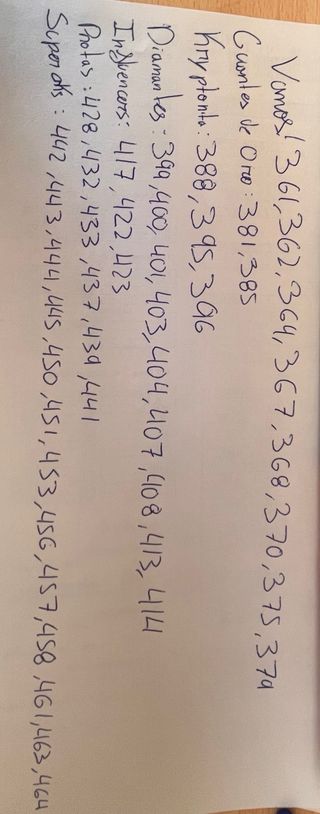 Vamos! 361,362,364,367,368,370,375,379
Guantes de Oro: 381,385
Kryptonita: 388,395,396
Diamantes: 399,400,401,403,404,407,408,413,414
Influencers: 417,422,423
Pirotas: 428,432,433,437,439,441
Super cks: 442,443,444,445,450,451,453,456,457,458,461,463,464